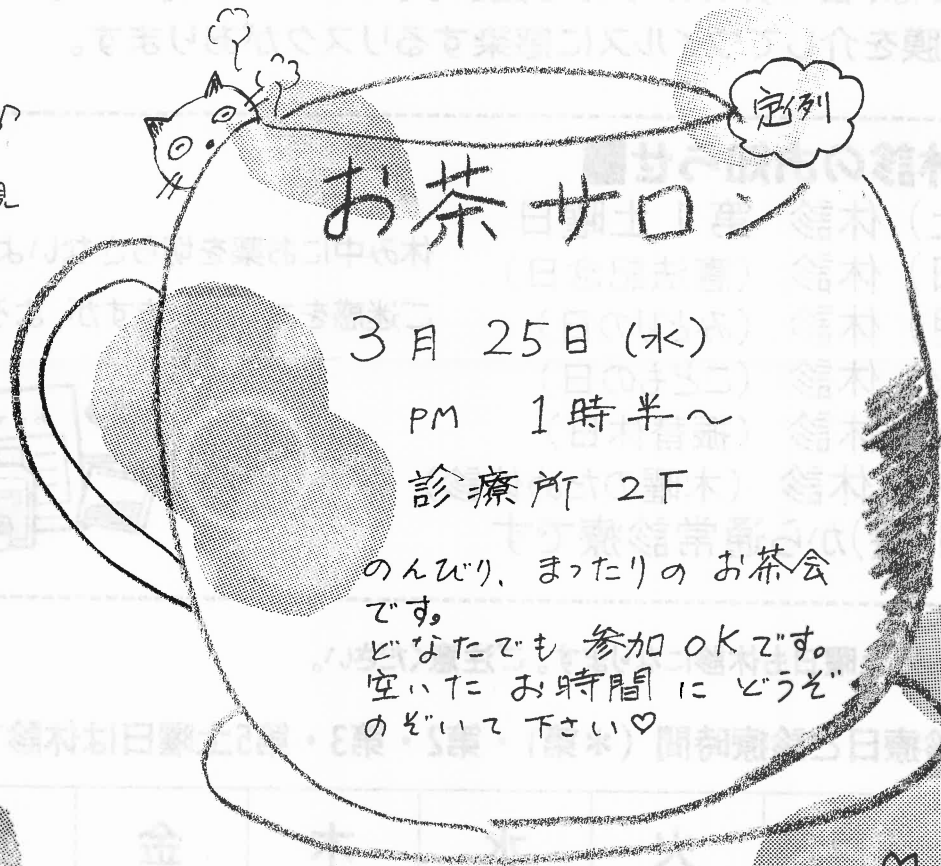 定例
お茶サロン
3月 25日 (水)
PM 1時半～
診療所 2F
のんびり、まったりの お茶会
です。
どなたでも 参加 OKです。
空いた お時間 に どうぞ
のぞいて 下さい♡